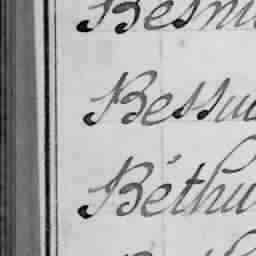 Besni
Bessu
Béthu